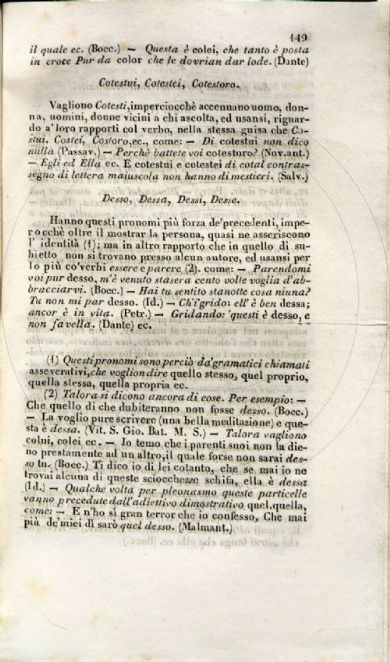 149
il quale ec. (Bocc.) — Questa è colei, che tanto è posta
in croce Pur da color che le dovrian dar lode. (Dante)
Cotestui, Cotestei, Cotestoro.
Vagliono Cotesti, imperciocchè accennano uomo, don-
na, uomini, donne vicini a chi ascolta, ed usansi, riguar-
do a'loro rapporti col verbo, nella stessa guisa che Co-
stui, Costei, Costoro, ec., come: — Di cotestui non dico
nulla (Passav.) — Perchè battete voi cotestoro? (Novant.)
— Egli ed Ella ec. E cotestui e cotestei di cotal contras-
segno di lettera maiuscola non hanno di mestieri. (Salv.)
Desso, Dessa, Dessi, Desse.
Hanno questi pronomi più forza de'precedenti, impe-
rocchè oltre il mostrar la persona, quasi ne asseriscono
l' identità (1); ma in altro rapporto che in quello di su-
bietto non si trovano presso alcun autore, ed usansi per
lo più co'verbi essere e parere (2). come: — Parendomi
voi pur desso, m'è venuto stasera cento volle voglia d'ab-
bracciarvi. (Bocc.) — Hai tu sentito stanotte cosa niuna?
Tu non mi par desso. (Id.) — Ch'i'grido: ell' è ben dessa;
ancor è in vita. (Petr.) — Gridando: questi è desso, e
non favella. (Dante) ec.
(1) Questi pronomi sono perciò da'gramatici chiamati
asseverativi, che voglion dire quello stesso, quel proprio,
quella stessa, quella propria ec.
(2) Talora si dicono ancora di cose. Per esempio: —
Che quello di che dubiteranno non fosse desso. (Bocc.)
— La voglio pure scrivere (una bella meditazione) e que-
sta è dessa. (Vit. S. Gio. Bat. M. S.) — Talora vagliono
colui, colei ec. — Io temo che i parenti suoi non la die-
no prestamente ad un altro, il quale forse non sarai des-
so tu. (Bocc.) Ti dico io di lei cotanto, che se mai io ne
trovai alcuna di queste sciocchezze schifa, ella è dessa
(Id.) — Qualche volta per pleonasmo queste particelle
vanno precedute dall'adiettivo dimostrativo quel, quella,
come: — E n'ho sì gran terror che io confesso, Che mai
più de'miei dì sarò quel desso. (Malmant.)